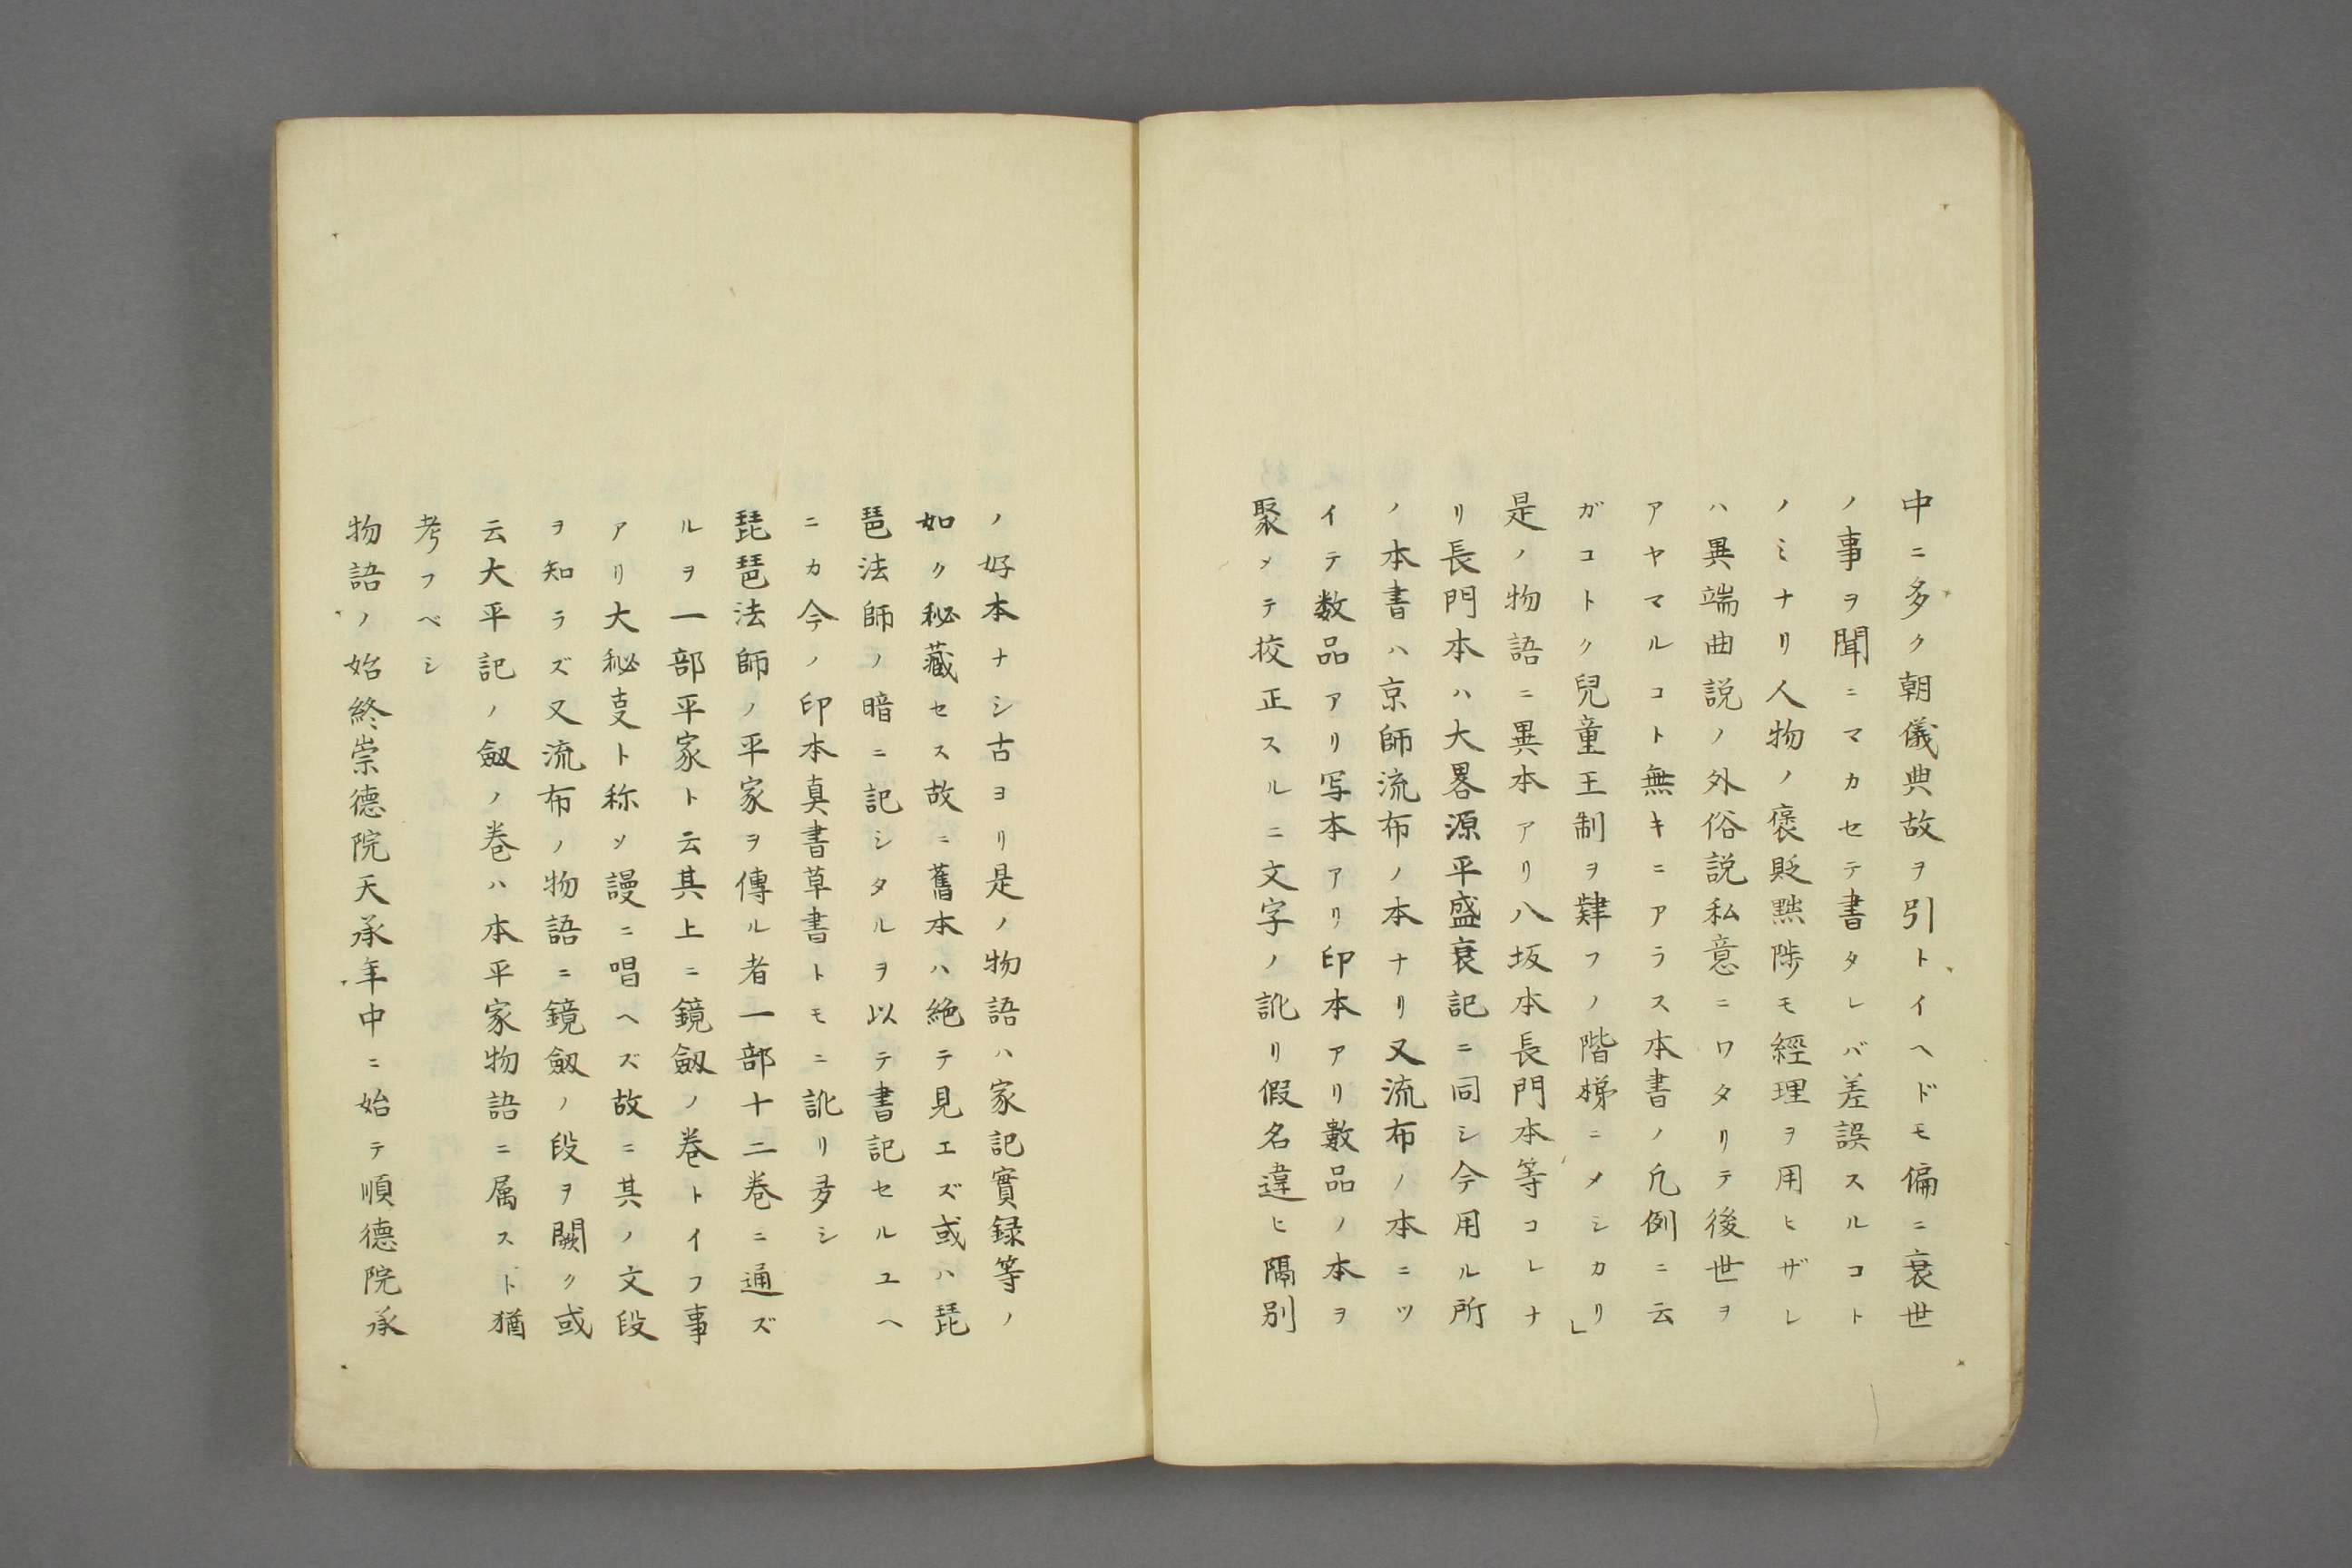 中ニ多ク朝儀典故ヲ引トイヘドモ偏ニ衰世
ノ事ヲ聞ニマカセテ書タレバ差誤スルコト
ノミナリ人物ノ褒貶黜陟モ經理ヲ用ヒザレ
ハ異端曲説ノ外俗説私意ニワタリテ後世ヲ
アヤマルコト無キニアラス本書ノ凡例ニ云
ガコトク兒童王制ヲ肄フノ階梯ニメシカリ」
是ノ物語ニ異本アリ八坂本長門本等コレナ
リ長門本ハ大畧源平盛衰記ニ同シ今用ル所
ノ本書ハ京師流布ノ本ナリ又流布ノ本ニツ
イテ数品アリ写本アリ印本アリ數品ノ本ヲ
聚メテ挍正スルニ文字ノ訛リ假名違ヒ隔別
ノ好本ナシ古ヨリ是ノ物語ハ家記實録等ノ
如ク秘藏セス故ニ舊本ハ絶テ見エズ或ハ琵
琶法師ノ暗ニ記シタルヲ以テ書記セルユヘ
ニカ今ノ印本真書草書トモニ訛リ多シ
琵琶法師ノ平家ヲ傳ル者一部十二巻ニ通ズ
ルヲ一部平家ト云其上ニ鏡劔ノ巻トイフ事
アリ大秘叓ト称ソ謾ニ唱ヘズ故ニ其ノ文段
ヲ知ラズ又流布ノ物語ニ鏡劔ノ段ヲ闕ク或
云大平記ノ劔ノ巻ハ本平家物語ニ属スト猶
考フベシ
物語ノ始終崇德院天承年中ニ始テ順德院承